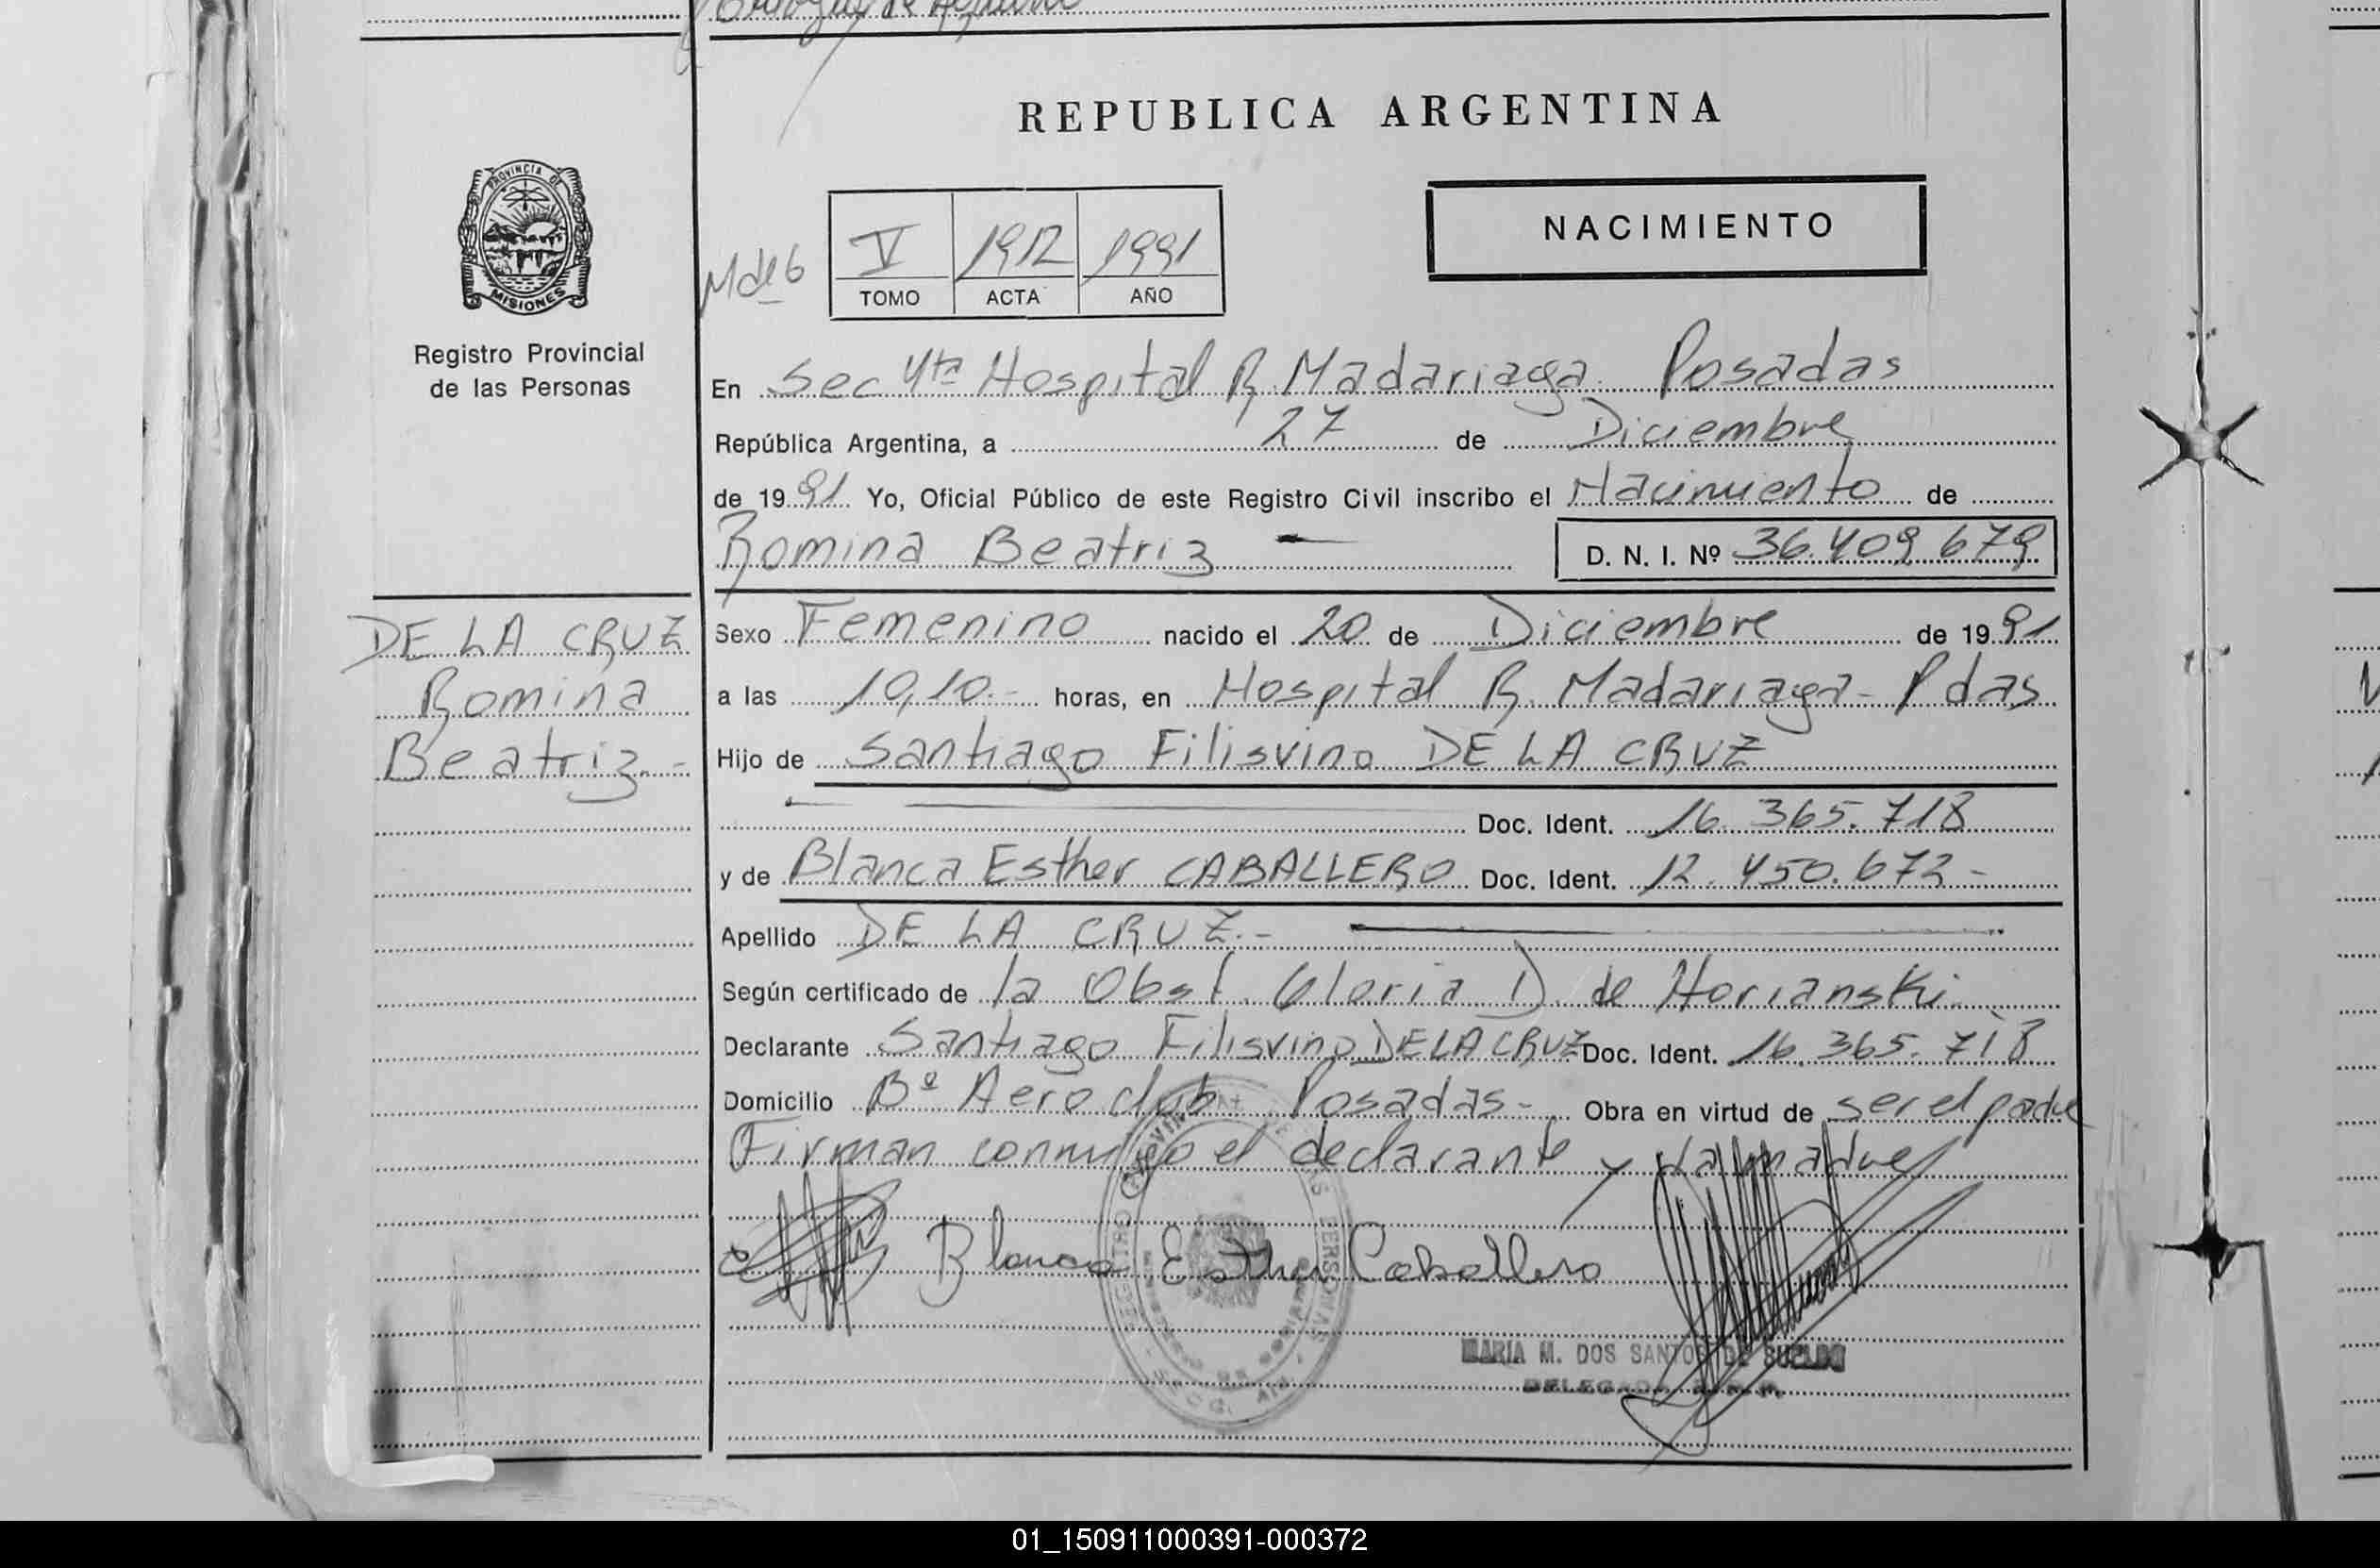 REPUBLICA ARGENTINA
PROVINCIA DE
MISIONES
Registro Provincial
de las Personas
NACIMIENTO
V 1912 1991
TOMO ACTA AÑO
En Sec 4ta Hospital R. Madariaga Posadas
República Argentina, a 27 de Diciembre
de 1991 Yo, Oficial Público de este Registro Civil inscribo el Nacimiento de
Romina Beatriz D. N. I. Nº 36.409.679
DE LA CRUZ
Romina
Beatriz.-
Sexo Femenino nacido el 20 de Diciembre de 1991
a las 10,10.- horas, en Hospital R. Madariaga - Pdas
Hijo de Santiago Filisvino DE LA CRUZ
Doc. Ident. 16.365.718
y de Blanca Esther CABALLERO Doc. Ident. 12.450.672-
Apellido DE LA CRUZ.-
Según certificado de la Obst. Gloria D. de Horianski
Declarante Santiago Filisvino DE LA CRUZ Doc. Ident. 16.365.718
Domicilio Bº Aero club Posadas- Obra en virtud de ser el padre
Firman conmigo el declarante y la madre
Blanca Esther Caballero
MARIA M. DOS SANTOS DE
01_150911000391-000372